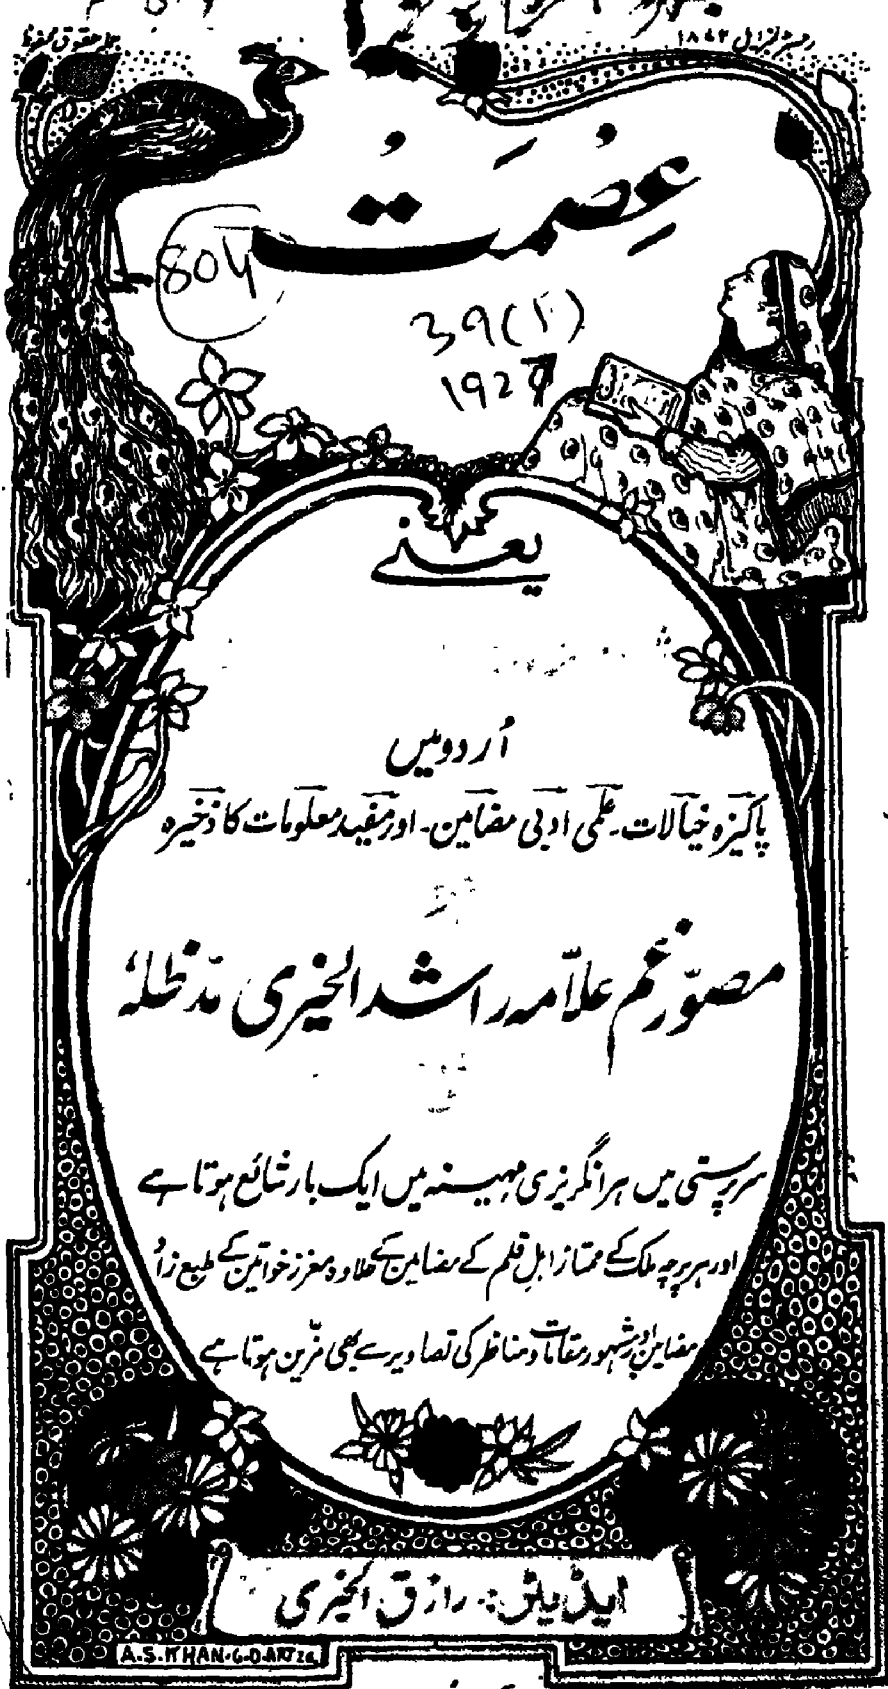 رجسٹرڈ ایل ۱۸۶۴
جملہ حقوق محفوظ
عِصْمَتُ
804
39(1)
1927
یعنے
اُردو میں
پاکیزہ خیالات۔ علمی ادبی مضامین۔ اور مفید معلومات کا ذخیرہ
مصوّرِ غم علاّمہ راشد الخیری مدّ ظلہٗ
سرپرستی میں ہر انگریزی مہینہ میں ایک بار شائع ہوتا ہے
اور ہر پرچہ ملک کے ممتاز اہلِ قلم کے مضامین کے علاوہ معزز خواتین کے طبع زاد
مضامین اور مشہور مقامات و مناظر کی تصاویر سے بھی مزّین ہوتا ہے
ایڈیٹر :- رازق الخیری
A.S.KHAN.G.D.ART